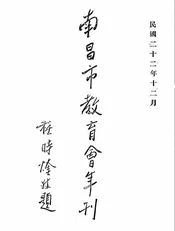 民國二十二年十二月
南昌市教育會年刊
程時煃題